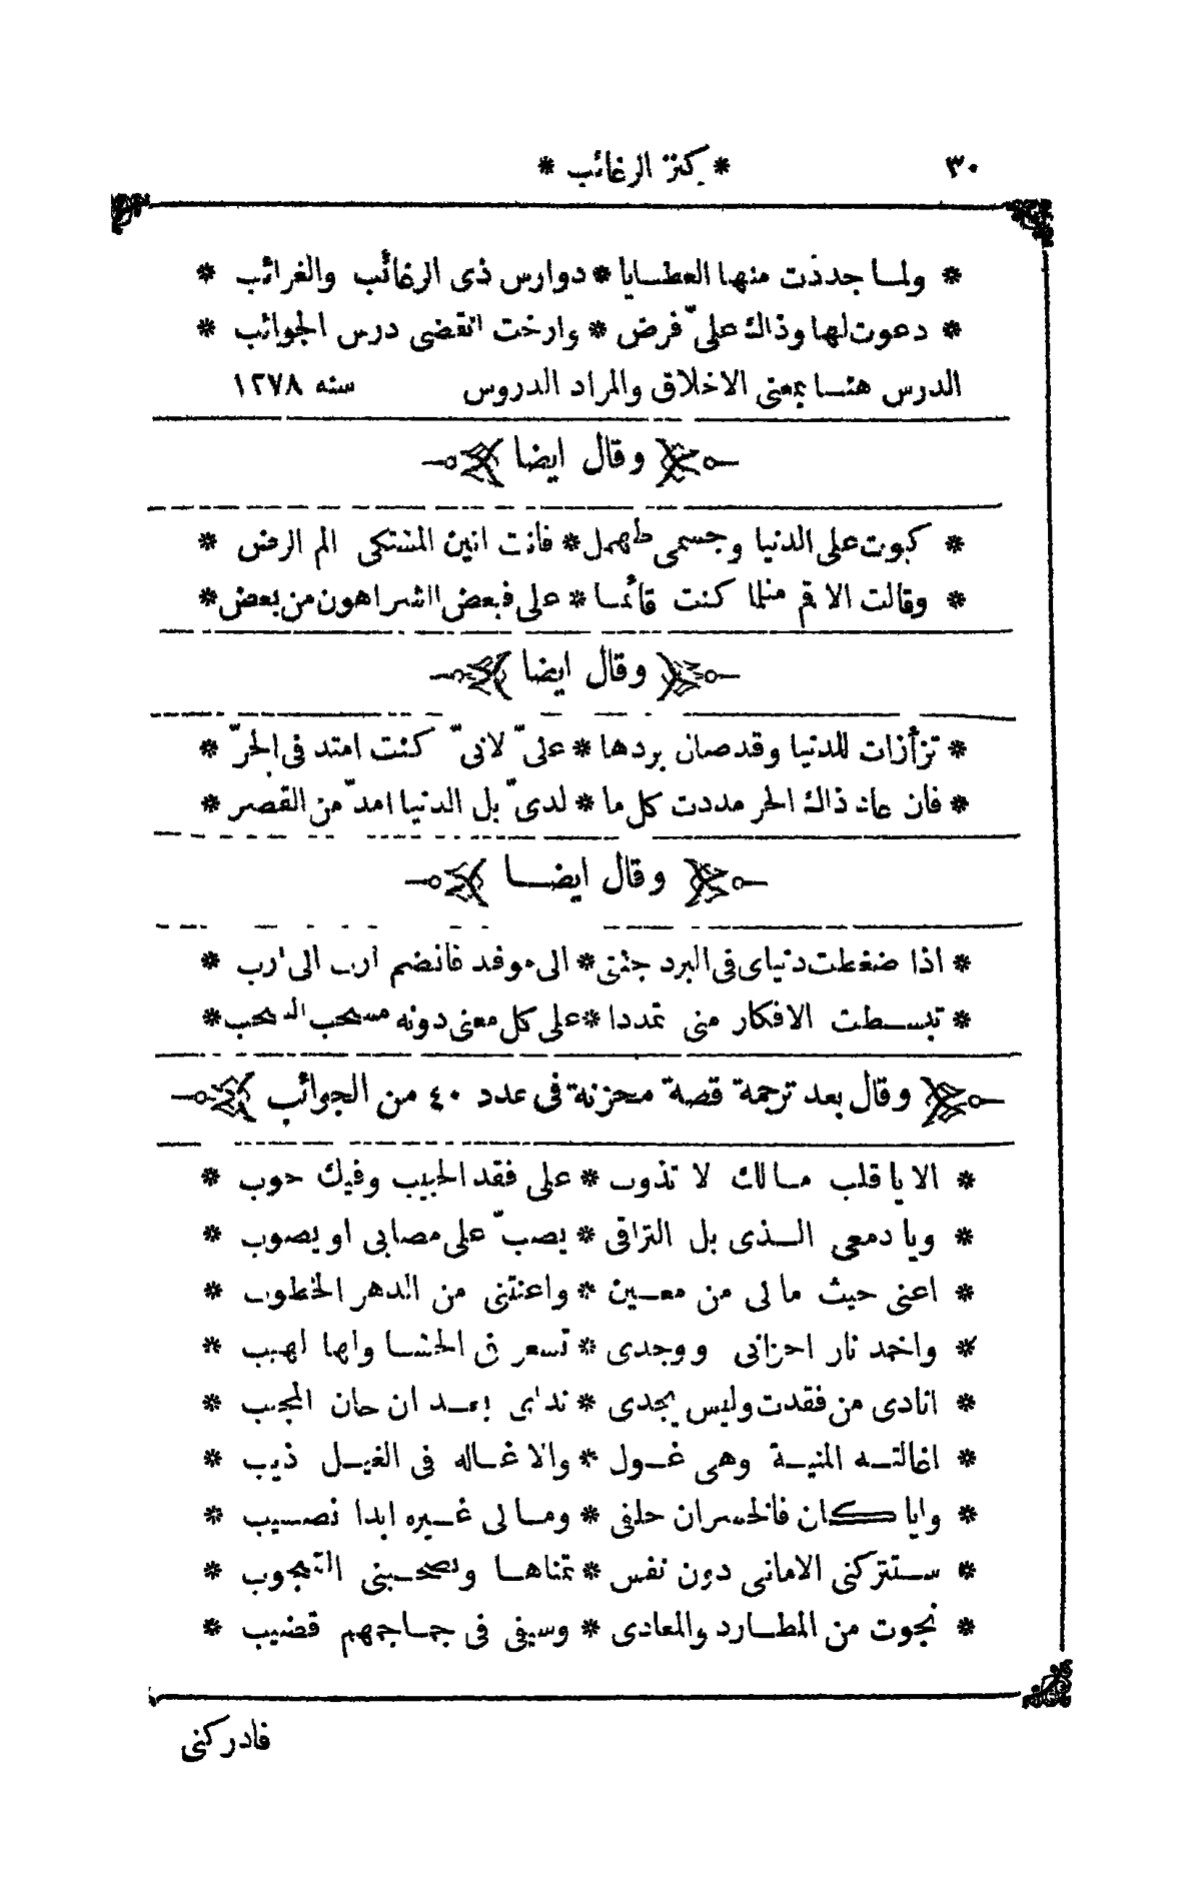 ٣٠ * كنز الرغائب *
* ولما جددت منها العطايا * دوارس ذى الرغائب والغرائب *
* دعوت لها وذاك علىّ فرض * وارخت انقضى درس الجوائب *
الدرس هنا بمعنى الاخلاق والمراد الدروس سنه ١٢٧٨
وقال ايضا
* كبوت على الدنيا وجسمى مهمل * فانت انين المشتكى الم الرض *
* وقالت الا قم مثلما كنت قائما * على فبعض الشر اهون من بعض *
وقال ايضا
* تزأزات للدنيا وقد صان بردها * علىّ لانىّ كنت امتد فى الحرّ *
* فان عاد ذاك الحر مددت كل ما * لدىّ بل الدنيا امدّ من القصر *
وقال ايضا
* اذا ضغطت دنياى فى البرد جثتى * الى موقد فانضم ارب الى ارب *
* تبسطت الافكار منى تمددا * على كل معنى دونه مسحب السحب *
وقال بعد ترجمة قصة محزنة فى عدد ٤٠ من الجوائب
* الا يا قلب مالك لا تذوب * على فقد الحبيب وفيك حوب *
* ويا دمعى الذى بل التراقى * يصبّ على مصابى او يصوب *
* اعنى حيث مالى من معين * واعنتنى من الدهر الخطوب *
* واخمد نار احزانى ووجدى * تسعر فى الحشا ولها لهيب *
* انادى من فقدت وليس يجدى * ندائى بعد ان حان المجيب *
* اغالته المنية وهى غول * والا غاله فى الغيل ذيب *
* وايا كان فالخسران حلفى * ومالى غيره ابدا نصيب *
* ستتركنى الامانى دون نفس * تمناها وتصحبنى الشجوب *
* نجوت من المطارد والمعادى * وسيفى فى جماجمهم قضيب *
فادركنى